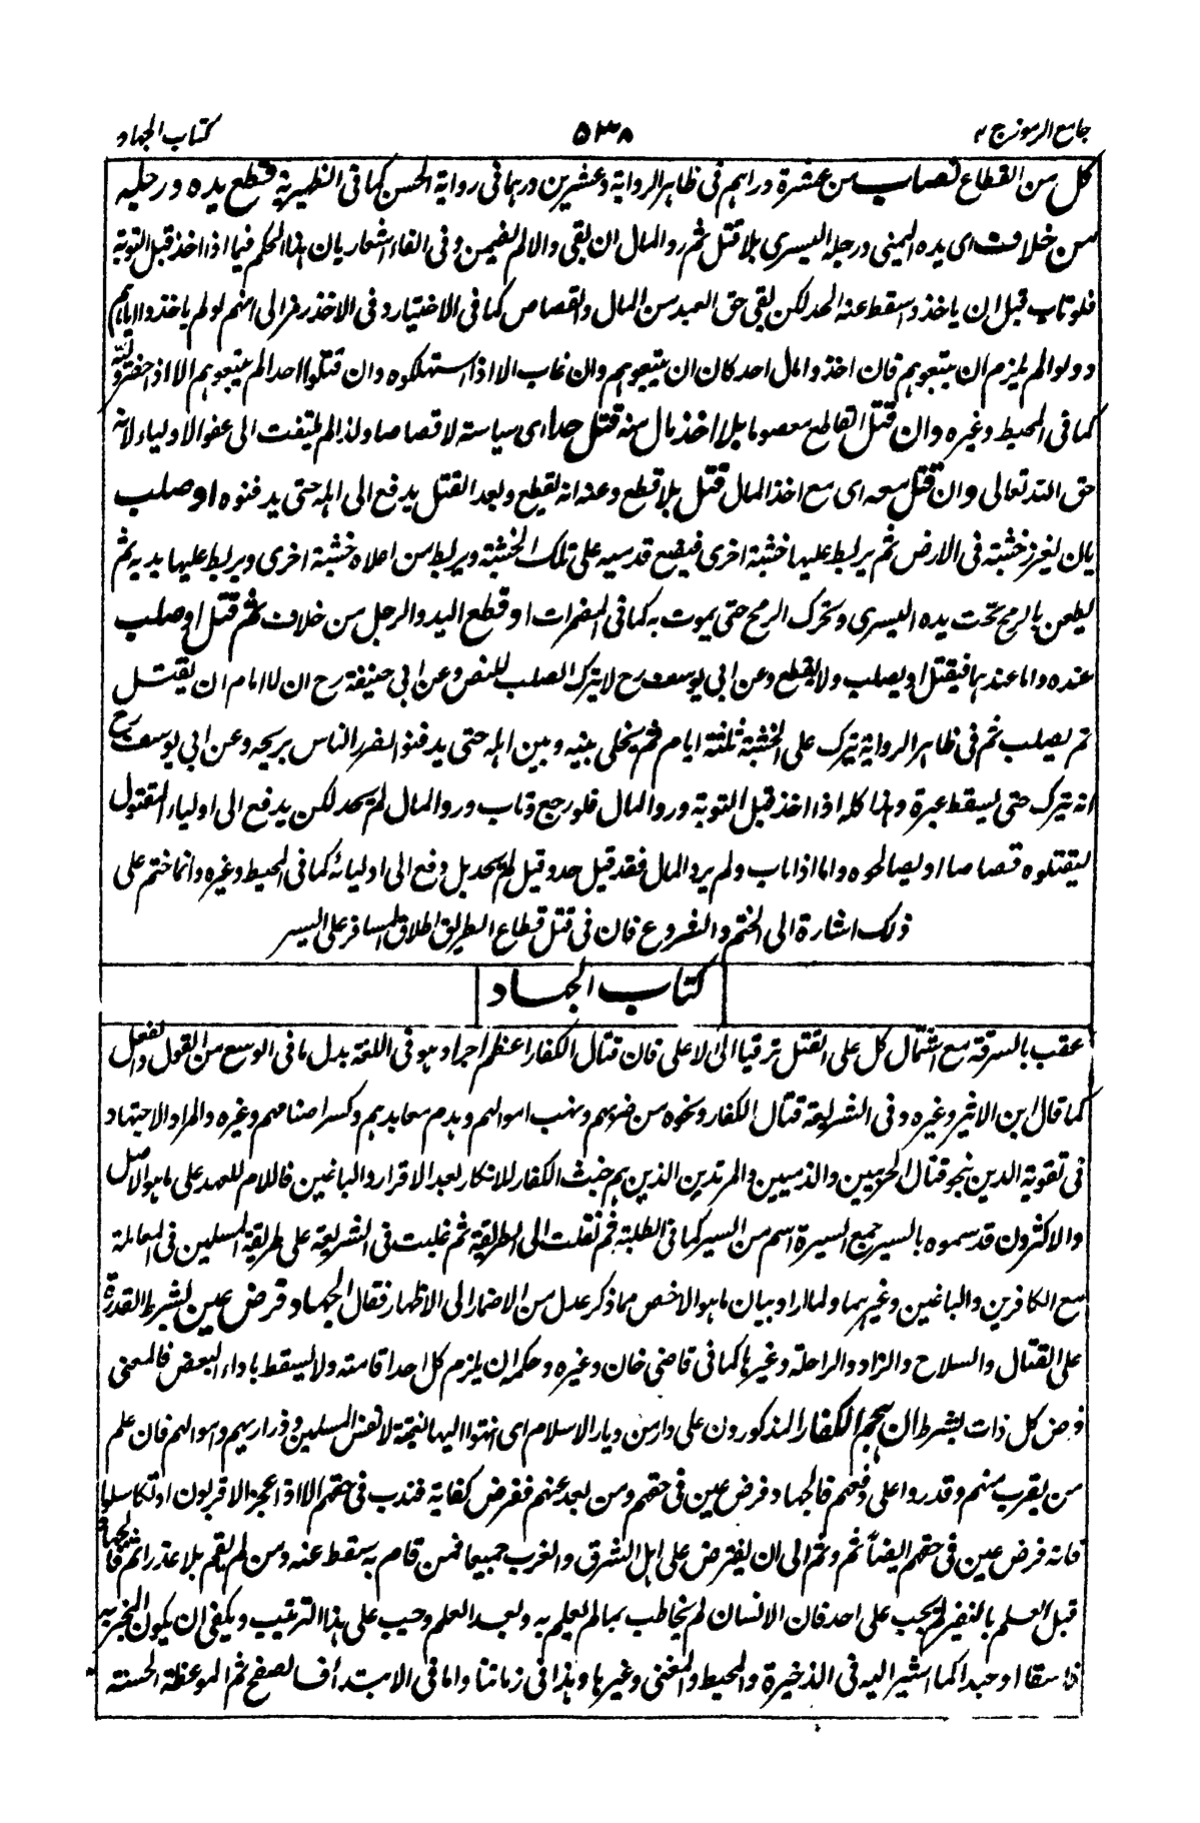 جامع الرموز ج ٢ ٥٣٨ كتاب الجهاد
كل من القطاع نصاب من عشرة دراهم فى ظاهر الرواية وعشرين درهما فى رواية الحسن كما فى الظهيرية قطع يده ورجليه
من خلاف اى يده اليمنى ورجله اليسرى بلا قتل ثم رد المال ان بقى والا لم يضمن وفى الفاء اشعار بان هذا الحكم فيما اذا اخذ قبل التوبة
فلو تاب قبل ان ياخذ وسقط عنه الحد لكن بقى حق العبد من المال والقصاص كما فى الاختيار وفى الاخذ رمز الى انهم لو لم ياخذوا
ولوا لم يلزم ان يتبعوهم فان اخذوا مال احد كان ان يتبعوهم وان غاب الا اذا استهلكوه وان قتلوا احدا لم يتبعوهم الا اذا حضر وليه
كما فى المحيط وغيره وان قتل القاطع معصوما بلا اخذ مال منه قتل حدا اى سياسة لا قصاصا ولذا لم يلتفت الى عفو الاولياء لانه
حق الله تعالى وان قتل معه اى مع اخذ المال قتل بلا قطع وعنه انه لقطع وبعد القتل يدفع الى اهله حتى يدفنوه او صلب
بان يغرز خشبة فى الارض ثم يربط عليها خشبة اخرى فيضع قدميه على تلك الخشبة ويربط من اعلاه خشبة اخرى ويربط عليها يديه ثم
يطعن بالرمح تحت يده اليسرى ويحرك الرمح حتى يموت به كما فى المضمرات او قطع اليد والرجل من خلاف ثم قتل او صلب
عنده واما عندهما فيقتل او يصلب ولا يقطع وعن ابى يوسف رح لا يترك الصلب للنص وعن ابى حنيفة رح ان للامام ان يقتل
ثم يصلب ثم فى ظاهر الرواية يترك على الخشبة ثلثة ايام ثم يخلى بينه وبين اهله حتى يدفنوا لضرر الناس بريحه وعن ابى يوسف رح
انه يترك حتى يسقط عبرة وهذا كله اذا اخذ قبل التوبة ورد المال فلو رجع وتاب ورد المال لم يحد لكن يدفع الى اولياء المقتول
ليقتلوه قصاصا او يصالحوه واما اذا تاب ولم يرد المال فقد قيل حد وقيل لم يحد بل دفع الى اوليائه كما فى المحيط وغيره وانما ختم على
ذلك اشارة الى الختم والشروع فان فى قتل قطاع الطريق اطلاق المسافر على السير
كتاب الجهاد
عقب بالسرقة مع اشتمال كل على القتل ترقيا الى الاعلى فان قتال الكفار اعظم اجرا وهو فى اللغة بذل ما فى الوسع من القول والفعل
كما قال ابن الاثير وغيره وفى الشريعة قتال الكفار ونحوه من ضربهم ونهب اموالهم وهدم معابدهم وكسر اصنامهم وغيره والمراد الاجتهاد
فى تقوية الدين بنحو قتال الحربيين والذميين والمرتدين الذين هم خبث الكفار للانكار بعد الاقرار والباغين فاللام للعهد على ما هو الاصل
والاكثرون قد سموه بالسير جمع السيرة اسم من السير كما فى الطلبة ثم نقلت الى الطريقة ثم غلبت فى الشريعة على طريقة المسلمين فى المعاملة
مع الكافرين والباغين وغيرهما ولما اراد بيان ما هو الاخص مما ذكر عدل من الاضمار الى الاظهار فقال الجهاد فرض عين بشرط القدرة
على القتال والسلاح والزاد والراحلة وغيرها كما فى قاضى خان وغيره وحكمه ان يلزم كل احد اقامته ولا يسقط باداء البعض فالمعنى
فرض كل ذات بشرط ان هجم الكفار المذكورون على دار من ديار الاسلام اى انتهوا اليها بغتة لانفس المسلمين وذراريهم واموالهم فان علم
من يقرب منهم وقدروا على دفعهم فالجهاد فرض عين فى حقهم ومن بعد عنهم ففرض كفاية فندب فى حقهم الا اذا عجز الاقربون او تكاسلوا
فانه فرض عين فى حقهم ايضاً ثم وثم الى ان يفترض على اهل الشرق والغرب جميعا فمن قام به سقط عنه ومن لم يقم بلا عذر اثم فالجهاد
قبل العلم بالنفير لم يجب على احد فان الانسان لم يخاطب بما لم يعلم به وبعد العلم وجب على هذا الترتيب ويكفى ان يكون المخبر به
فاسقا او عبدا كما اشير اليه فى الذخيرة والمحيط والمغنى وغيرها وهذا فى زماننا واما فى الابتداء فالصفح ثم الموعظة الحسنة